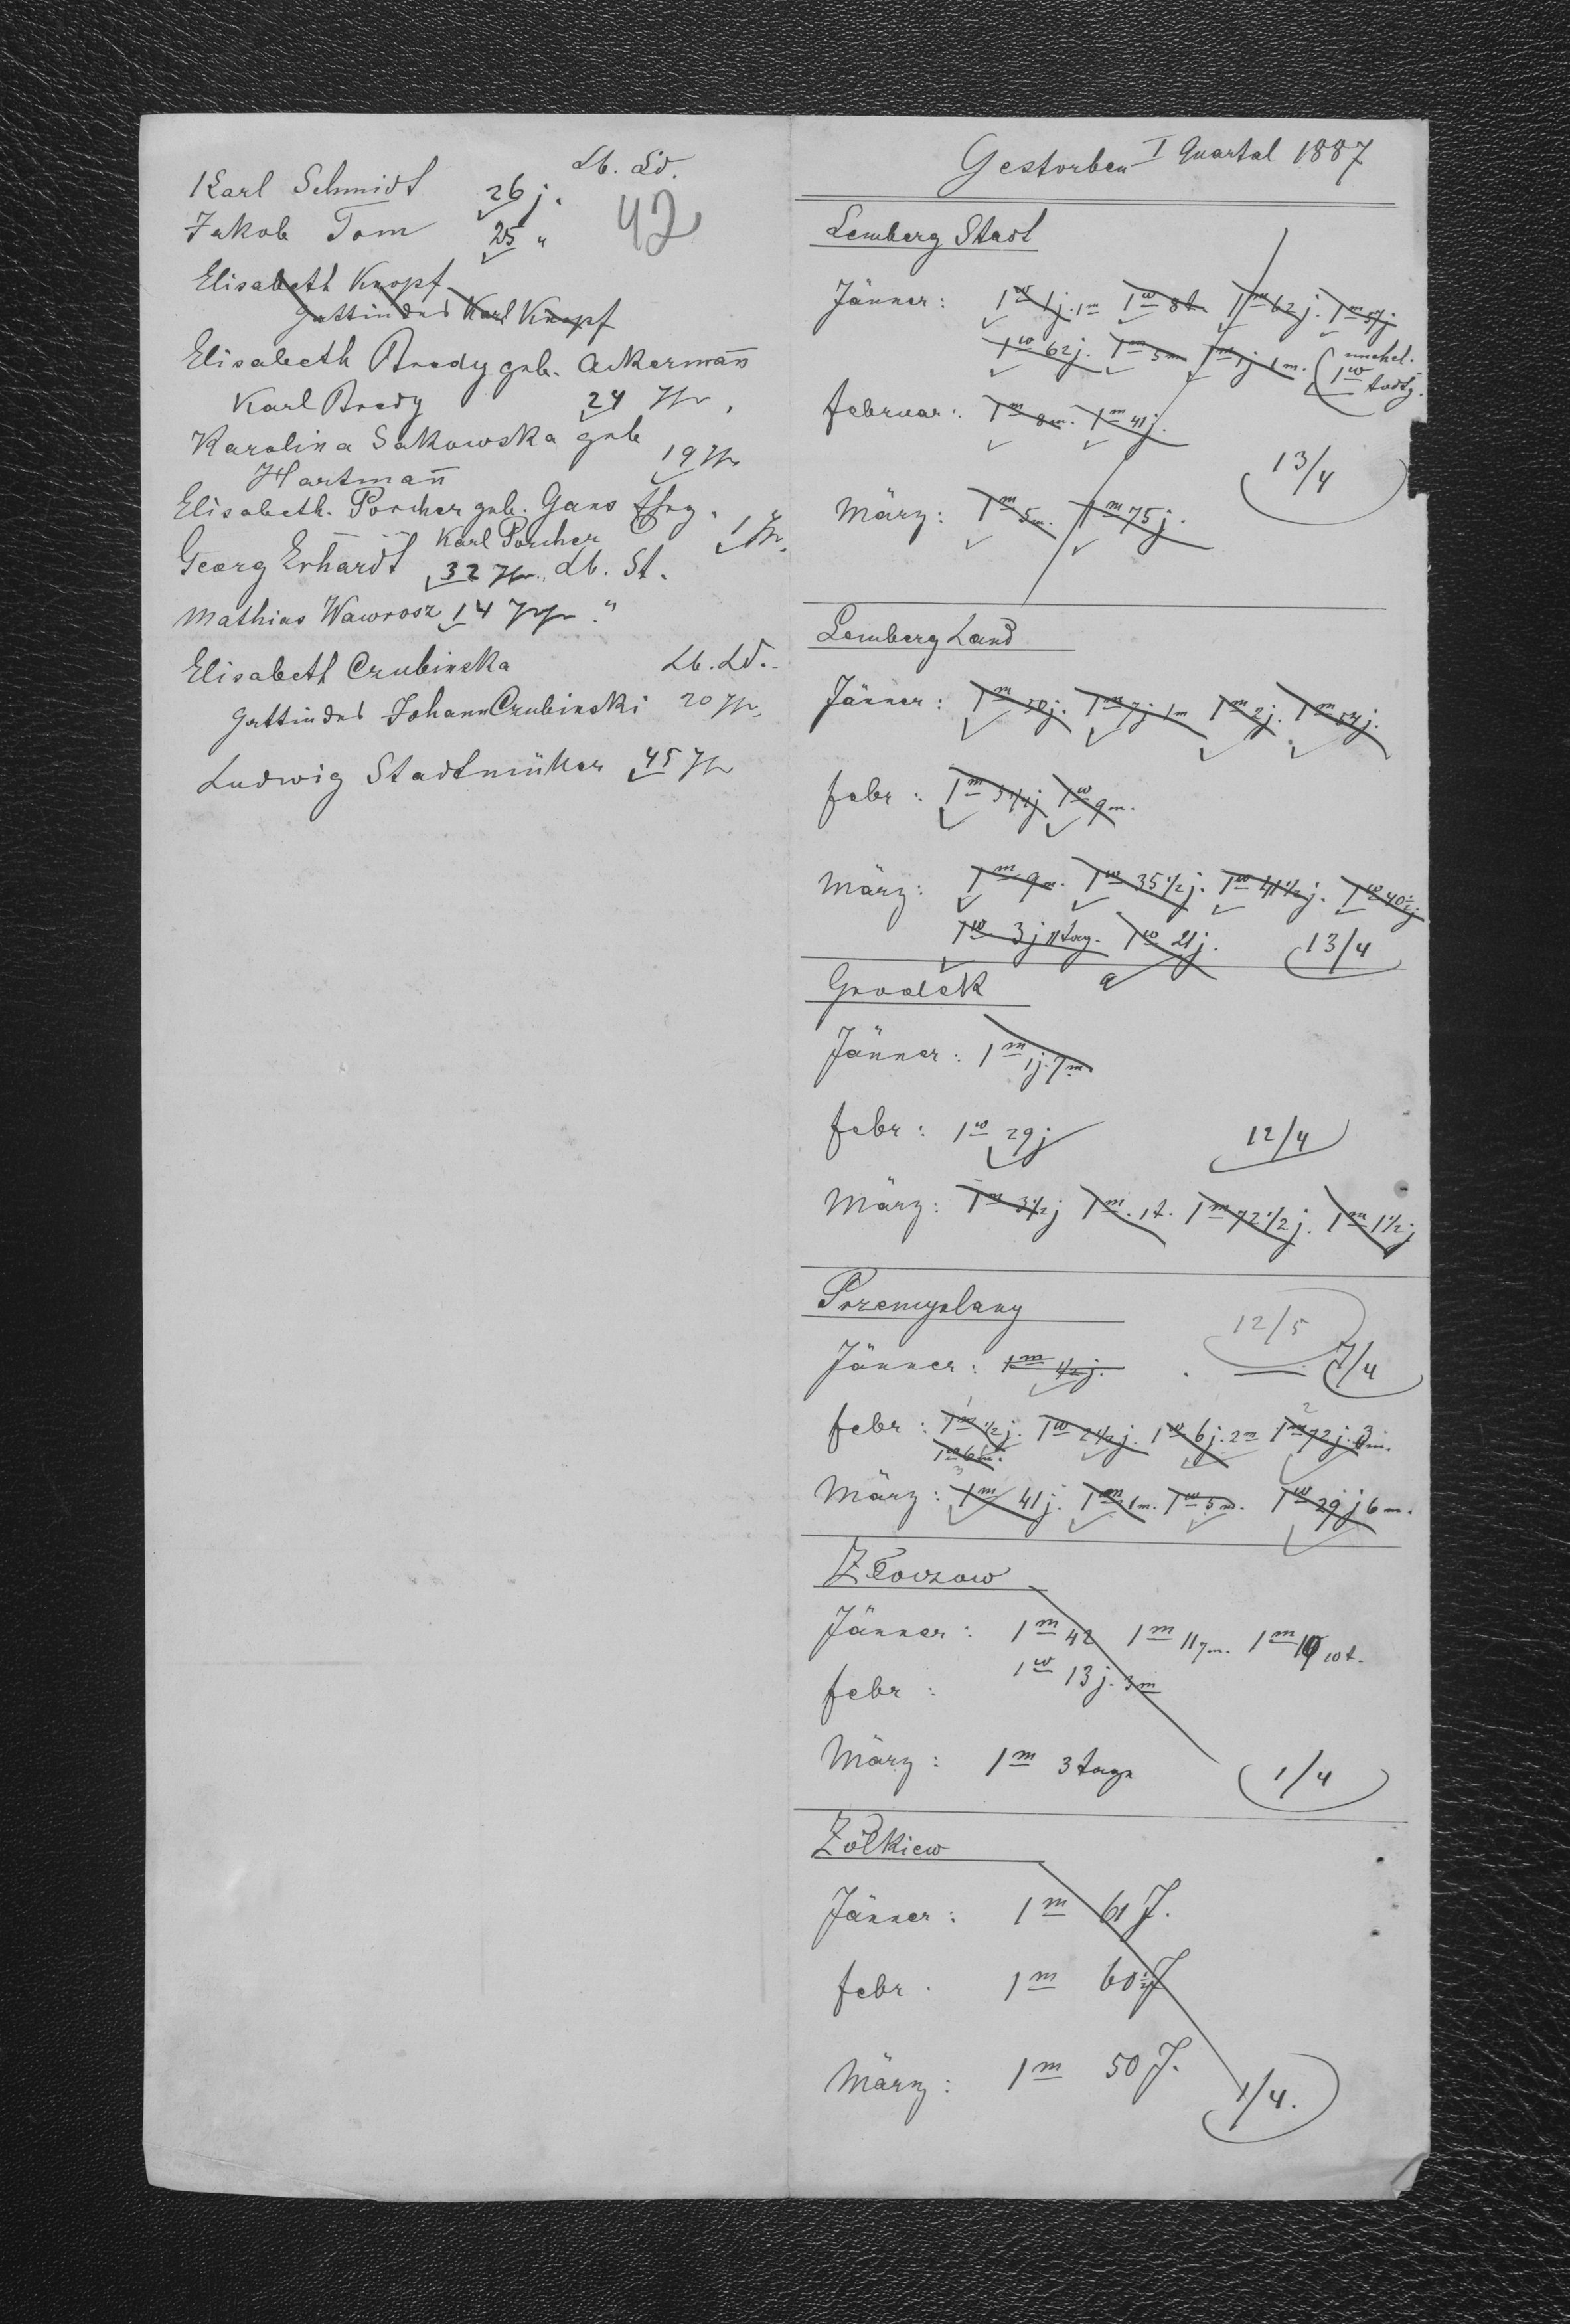 Karl Schmidt 26 j. Lb. Ld.
Jakob Tom 25 " 42
Elisabeth Knopf
Gattin des Karl Knopf
Elisabeth Bredy geb. Ackermann
Karl Bredy 24
Karolina Sakowska geb
Hartmann 19
Elisabeth Porcher geb. Gans
Karl Porcher 1
Georg Erhardt 32 Lb. St.
Mathias Wawrosz 14 "
Elisabeth Czubinska Lb. Ld.
Gattin des Johann Czubinski 20
Ludwig Stadtmüller 45
Gestorben I Quartal 1887
Lemberg Stadt
Jänner: 1w 1j. 1m 1w 8t. 1m 62j. 1m 57j
1w 62j. 1m 5m 1m 1j 1m. (unehel. 1w todtg.
Februar: 1m 8m. 1m 41j.
13/4
März: 1m 5m. 1m 75j.
Lemberg Land
Jänner: 1m 50j. 1m 7j 1m 1m 2j. 1m 54j.
Febr: 1m 3 1/4j 1w 9m.
März: 1m 9m. 1w 35 1/2 j. 1w 41 1/2 j. 1w 40 1/2 j
1w 3j 11 tag. 1w 21j. 13/4
Grodek
Jänner: 1m 1j. 7m
Febr: 1w 29j 12/4
März: 1m 3 1/2 j 1m. 1t. 1m 72 1/2 j. 1m 1 1/2 j
Przemyslany
12/5
Jänner: 1m 1/2 j. 7/4
Febr: 1m 1/2 j. 1w 2 1/2 j. 1w 6j. 2m 1m 72j. 3m.
März: 1m 41j. 1m 1m. 1w 5m. 1w 29j 6m.
Złoczow
Jänner: 1m 42 1m 11 7m. 1m 10t.
Febr: 1w 13j. 3m
März: 1m 3 Tage 1/4
Żółkiew
Jänner: 1m 61 J.
Febr. 1m 60 1/2 J
März: 1m 50 J.
1/4.